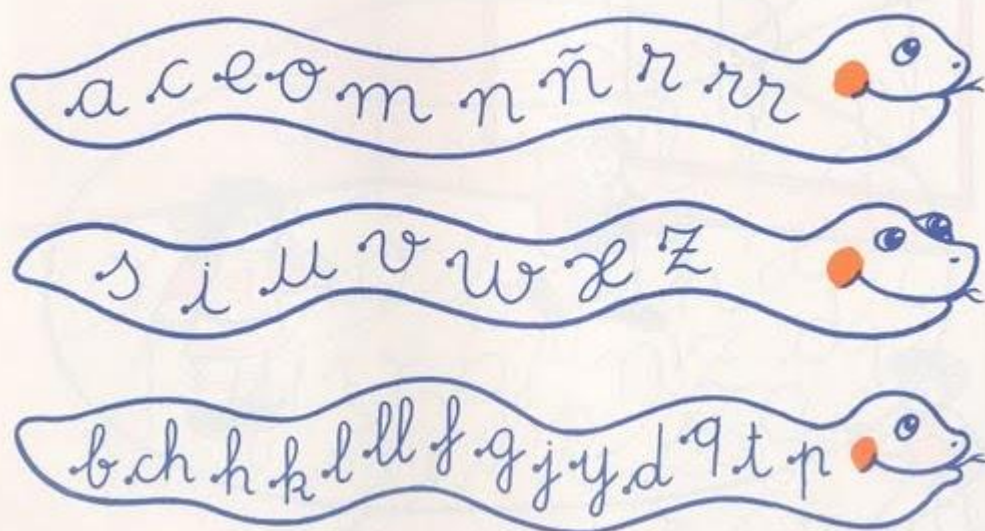 a c e o m n ñ r rr
s i u v w x z
b ch h k l ll f g j y d q t p